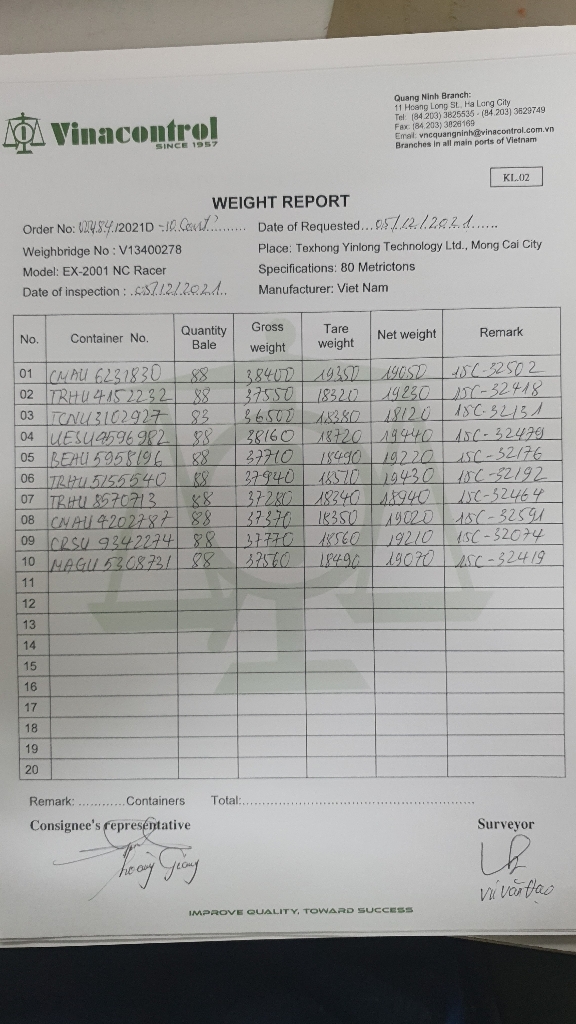 Quang Ninh Branch:
11 Hoang Long St., Ha Long City
Tel: (84.203) 3825535 - (84.203) 3829749
Fax: (84.203) 3826169
Email: vncquangninh@vinacontrol.com.vn
Branches in all main ports of Vietnam
Vinacontrol
SINCE 1957
KL.02
WEIGHT REPORT
Order No: /2021D - 10 Cont Date of Requested...05/12/2021......
Weighbridge No : V13400278 Place: Texhong Yinlong Technology Ltd., Mong Cai City
Model: EX-2001 NC Racer Specifications: 80 Metrictons
Date of inspection : .05/12/2021.. Manufacturer: Viet Nam
No. Container No. Quantity Bale Gross weight Tare weight Net weight Remark
01 CMAU 6231830 88 38400 19350 19050 15C-32502
02 TRHU 4152232 88 37550 18320 19230 15C-32418
03 TCNU 3102927 83 36500 18380 18120 15C-32131
04 UESU 4596982 88 38160 18720 19440 15C-32479
05 BEAU 5958196 88 37710 18490 19220 15C-32176
06 TRHU 5155540 88 37940 18510 19430 15C-32192
07 TRHU 8570713 88 37280 18340 18940 15C-32464
08 CMAU 4202787 88 37370 18350 19020 15C-32591
09 CRSU 9342274 88 37770 18560 19210 15C-32074
10 MAGU 5308731 88 37560 18490 19070 15C-32419
11
12
13
14
15
16
17
18
19
20
Remark: ............Containers Total:..........................................................
Consignee's representative Surveyor
Hoàng Giang
Vũ Văn Đạo
IMPROVE QUALITY, TOWARD SUCCESS